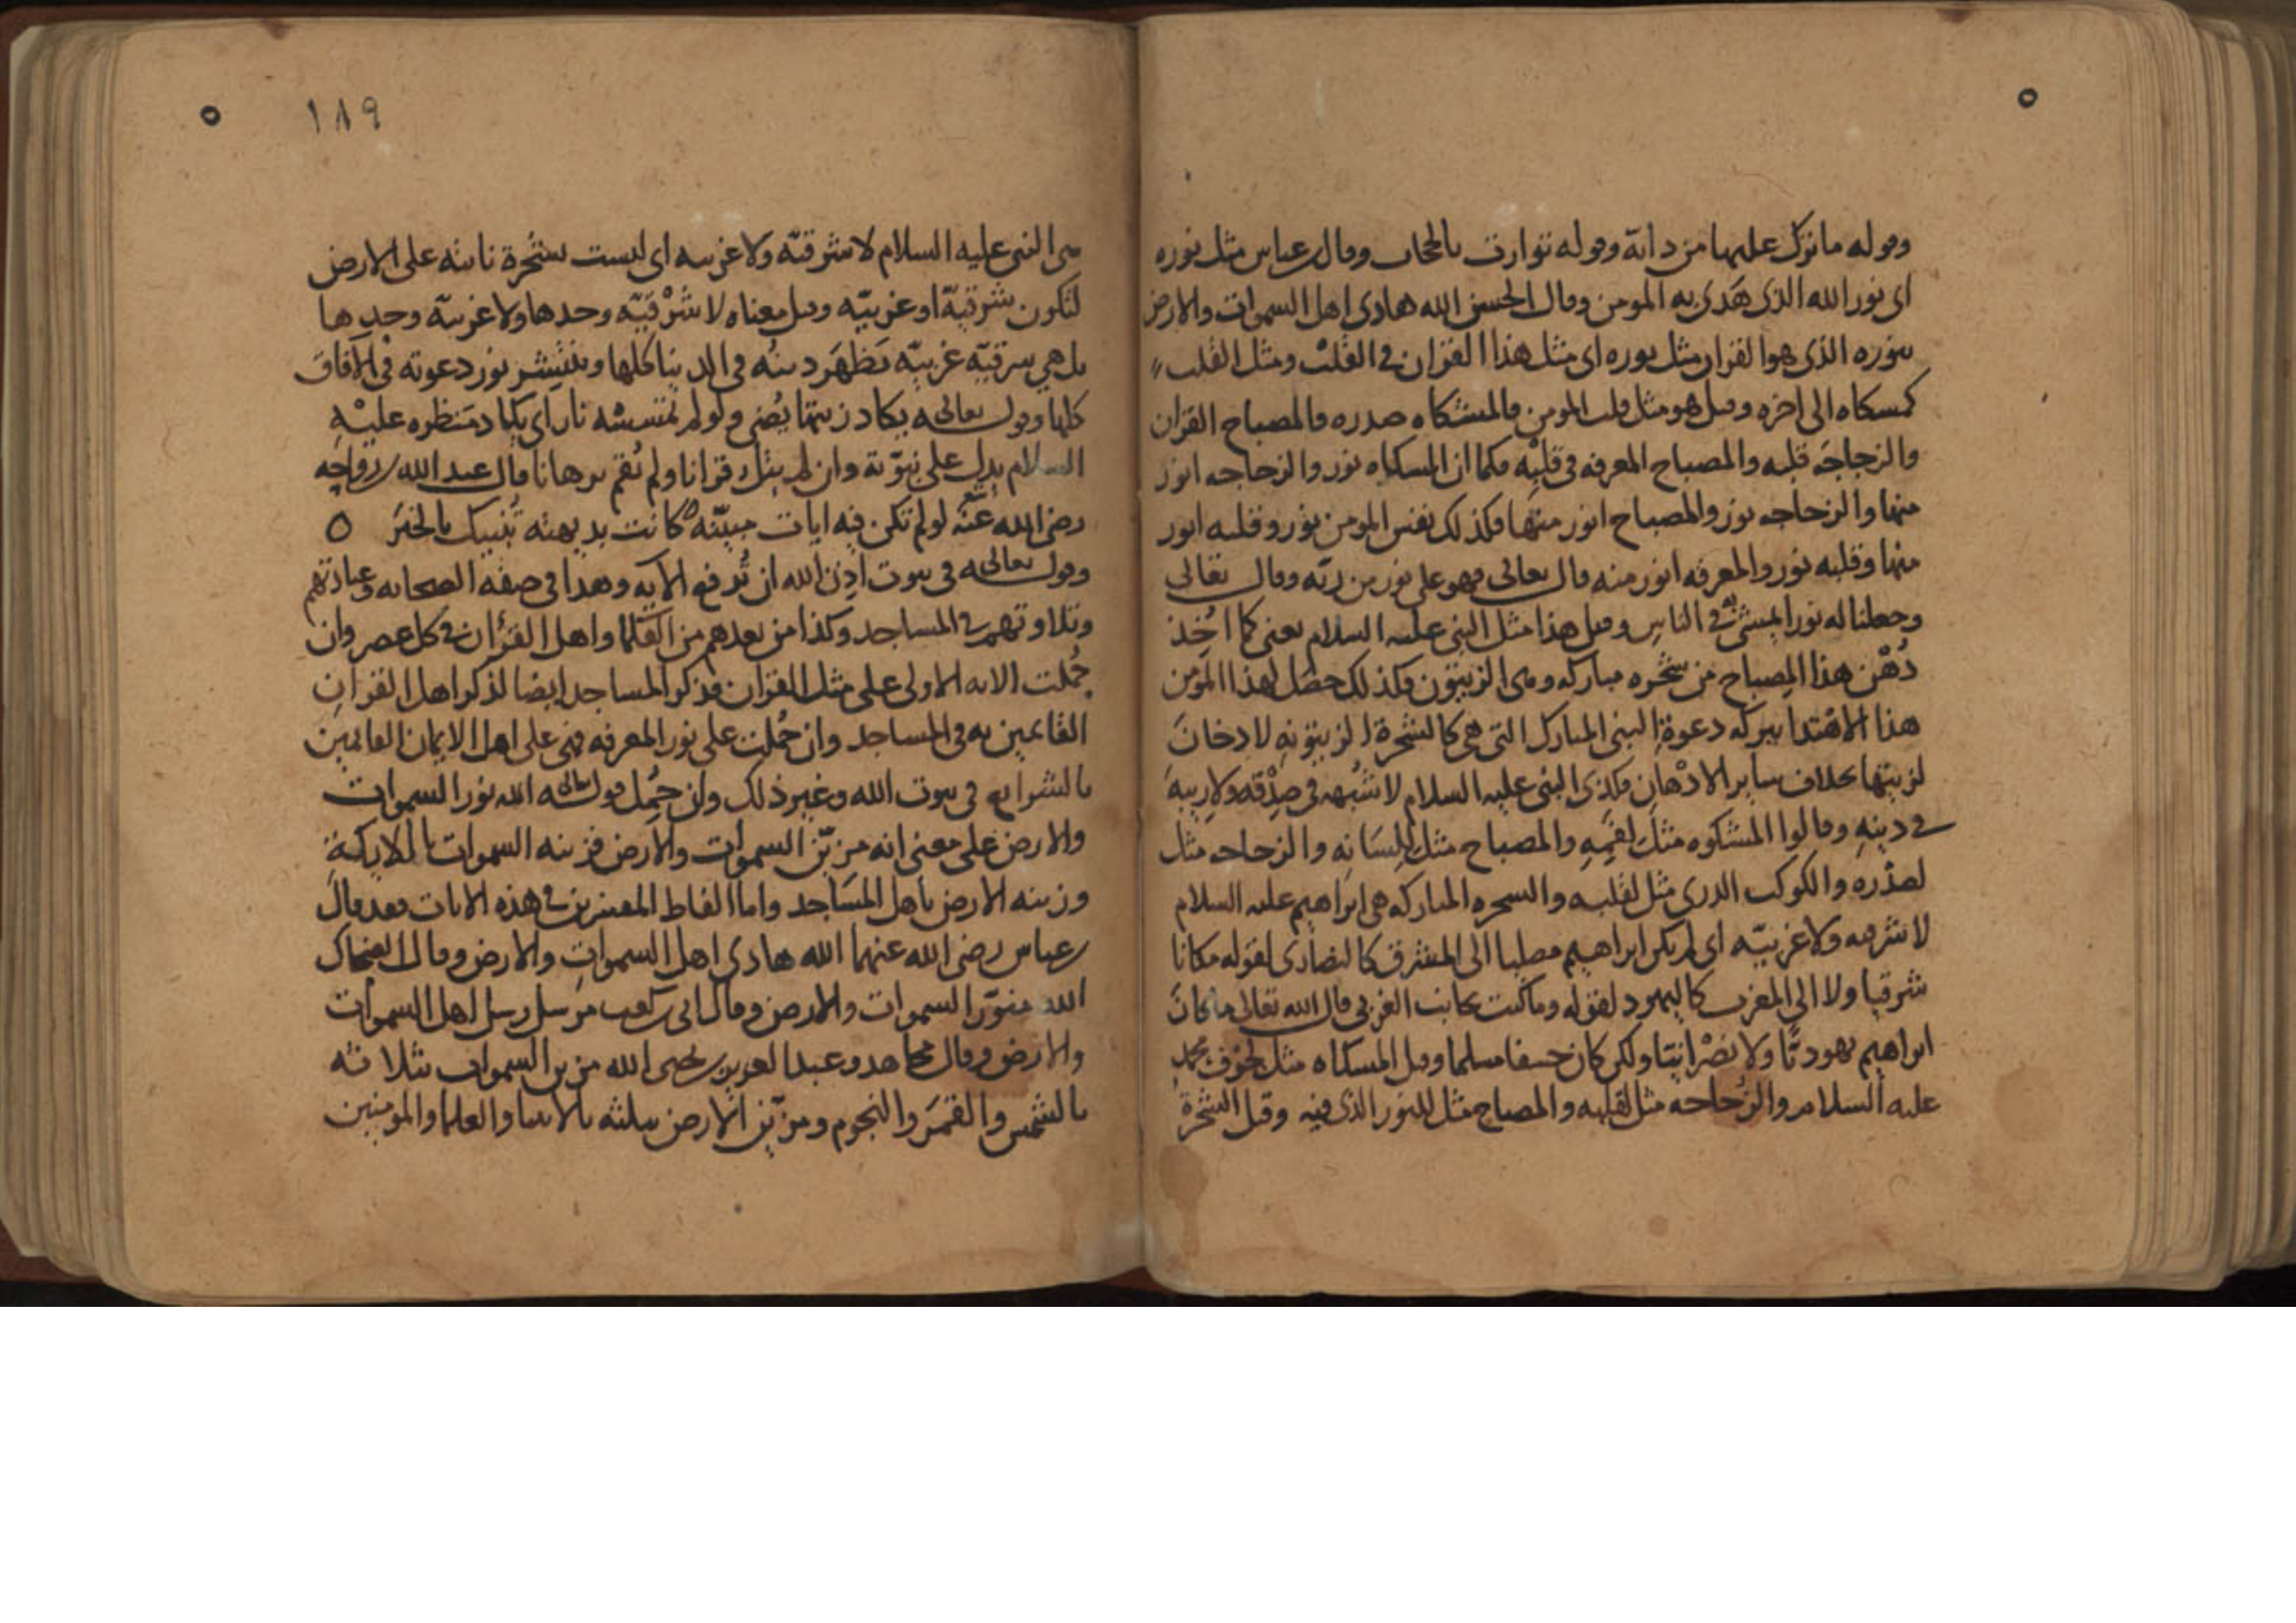 وقوله ما ترك عليها من دابة وقوله توارت بالحجاب وقال ابن عباس مثل نوره
اى نور الله الذى هَدى به المومن وقال الحسن الله هادى اهل السموات والارض
بنوره الذى هو القران مثل نوره اى مثل هذا القران في القلب ومثل القلب
كمشكاه الى اخره وقيل هو مثل قلب المومن فالمشكاه صدره والمصباح القران
والزجاجَه قلبه والمصباح المعرفه فى قلبِه فكما ان المشكاه نور والزجاجه انور
منها والزجاجه نور والمصباح انور منها فكذلك نفس المومن نور وقلبه انور
منها وقلبه نور والمعرفه انور منه قال تعالى فهو على نور من ربّه وقال تعالى
وجعلنا له نورا يمشى به في الناس وقيل هذا مثل النبى عليه السلام يعنى كما اُخِذ
دُهْن هذا المِصباح من شجره مباركه وهى الزيتون فكذلك حصَل لهذا المومن
هذا الاهْتدا ببركه دعوةِ النبى المبارك التى هى كالشجرة الزيتونهِ لا دخانَ
لزيتها بخلاف ساير الادْهانِ فكذى النبى عليه السلام لا شُبْهه فى صِدْقه ولا ريبهَ
في دينهِ وقالوا المشكوه مثلٌ لفَمِهِ والمصباح مثل لِلِسَانِه والزجاجه مثل
لصدْره والكوكب الدرى مثل لقلبه والشجره المباركه هى ابراهيم عليه السلام
لا شرقيه ولا غربيّه اى لم يكن ابراهيم مصليا الى المشرق كالنصارَى لقوله مكانا
شرقيا ولا الى المغرب كاليهود لقوله وما كنت بجانب الغربى قال الله تعالى ما كان
ابراهيم يهوديًا ولا نصْرانيًا ولكن كان حنيفا مسلما وقيل المشكاه مثل لجَوْف محمد
عليه السلام والزُجاجه مثل لقلبه والمصباح مثل للنور الذى فيه وقيل الشجرة
١٨٩
هى النبى عليه السلام لا شرقيّه ولا غربيه اى ليست بشجرة نابته على الارض
لتكون شرقيّة او غربيّه وقيل معناه لا شَرْقيّه وحدها ولا غربيّه وحدها
بل هى شرقيّه غربيّه يَظهَر دينُه فى الدنيا كلها وينتشر نور دعوته في الافاق
كلها وقوله تعالى يكاد زيتها يُضى ولو لم تمسسه نار اى يكاد مَنظره عليْهِ
السلام يدل على نبوّته وان لم يتل قرانا ولم يُقم برهانا قال عبد الله بن رواحه
رضى الله عنْه لو لم تكن فيه ايات مبيّنه كانت بديهته تُنبيك بالخبَر
وقوله تعالى فى بيوت اذِنَ الله ان تُرفع الايه وهذا فى صفه الصحابه وعبادتهم
وتلاوتهم في المساجد وكذا من بعدهم من العُلَما واهل القرْان في كل عصر وان
حُملت الايه الاولى على مثل القران فذكر المساجد ايضا لذكر اهل القران
القايمين به فى المساجد وان حُملت على نور المعرفه فهى على اهل الايمان القايمين
بالشرايع فى بيوت الله وغير ذلك وان حُمِل قوله تعالى الله نور السموات
والارض على معنى انه مزيّن السموات والارض فزينه السموات بالملايكة
وزينه الارض باهل المسَاجد واما الفاظ المفسرين في هذه الايات فقد قال
ابن عباس رضى الله عنهما الله هادى اهل السموات والارض وقال الضحاك
الله منوّر السموات والارض وقال ابى بن كعب مرسل رسل اهل السموات
والارض وقال مجاهد وعبد العزيز بن يحيى الله مزين السموات بثلاثه
بالشمس والقمَر والنجوم ومزيّن الارض بثلثه بالانبيا والعلما والمومنين